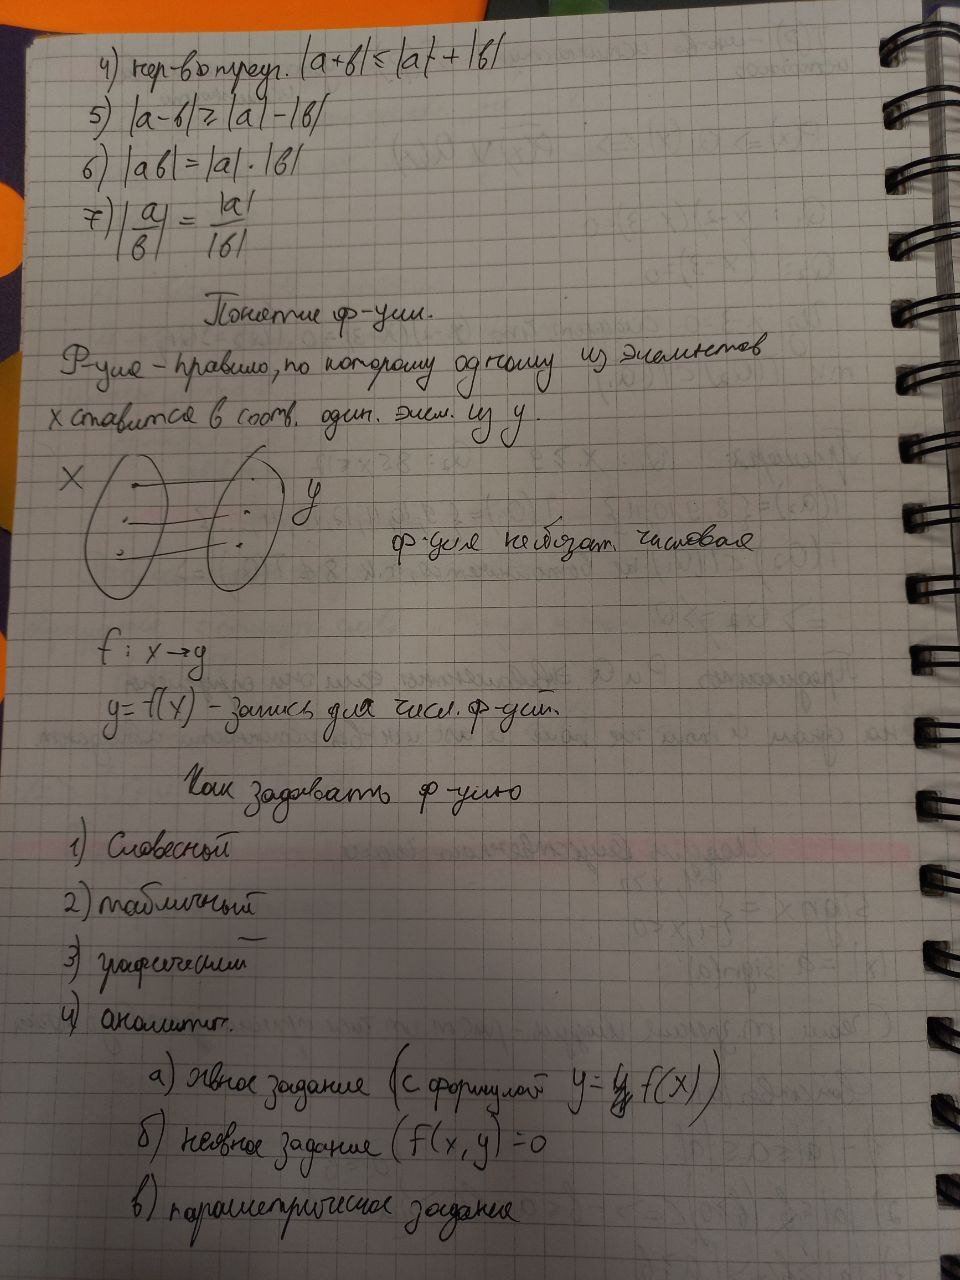 4) нер-во треуг. |a+b| ≤ |a| + |b|
5) |a-b| ≥ |a| - |b|
6) |ab| = |a| · |b|
7) |a/b| = |a|/|b|
Понятие ф-ции.
Ф-ция - правило, по которому одному из элементов
x ставится в соотв. один. элем. из y.
X
y
ф-ция необязат. числовая
f: x → y
y = f(x) - запись для числ. ф-ций.
Как задавать ф-цию
1) Словесный
2) табличный
3) графический
4) аналитич.
а) явное задание (с формулой y = f(x))
б) неявное задание (f(x, y) = 0
в) параметрическое задание